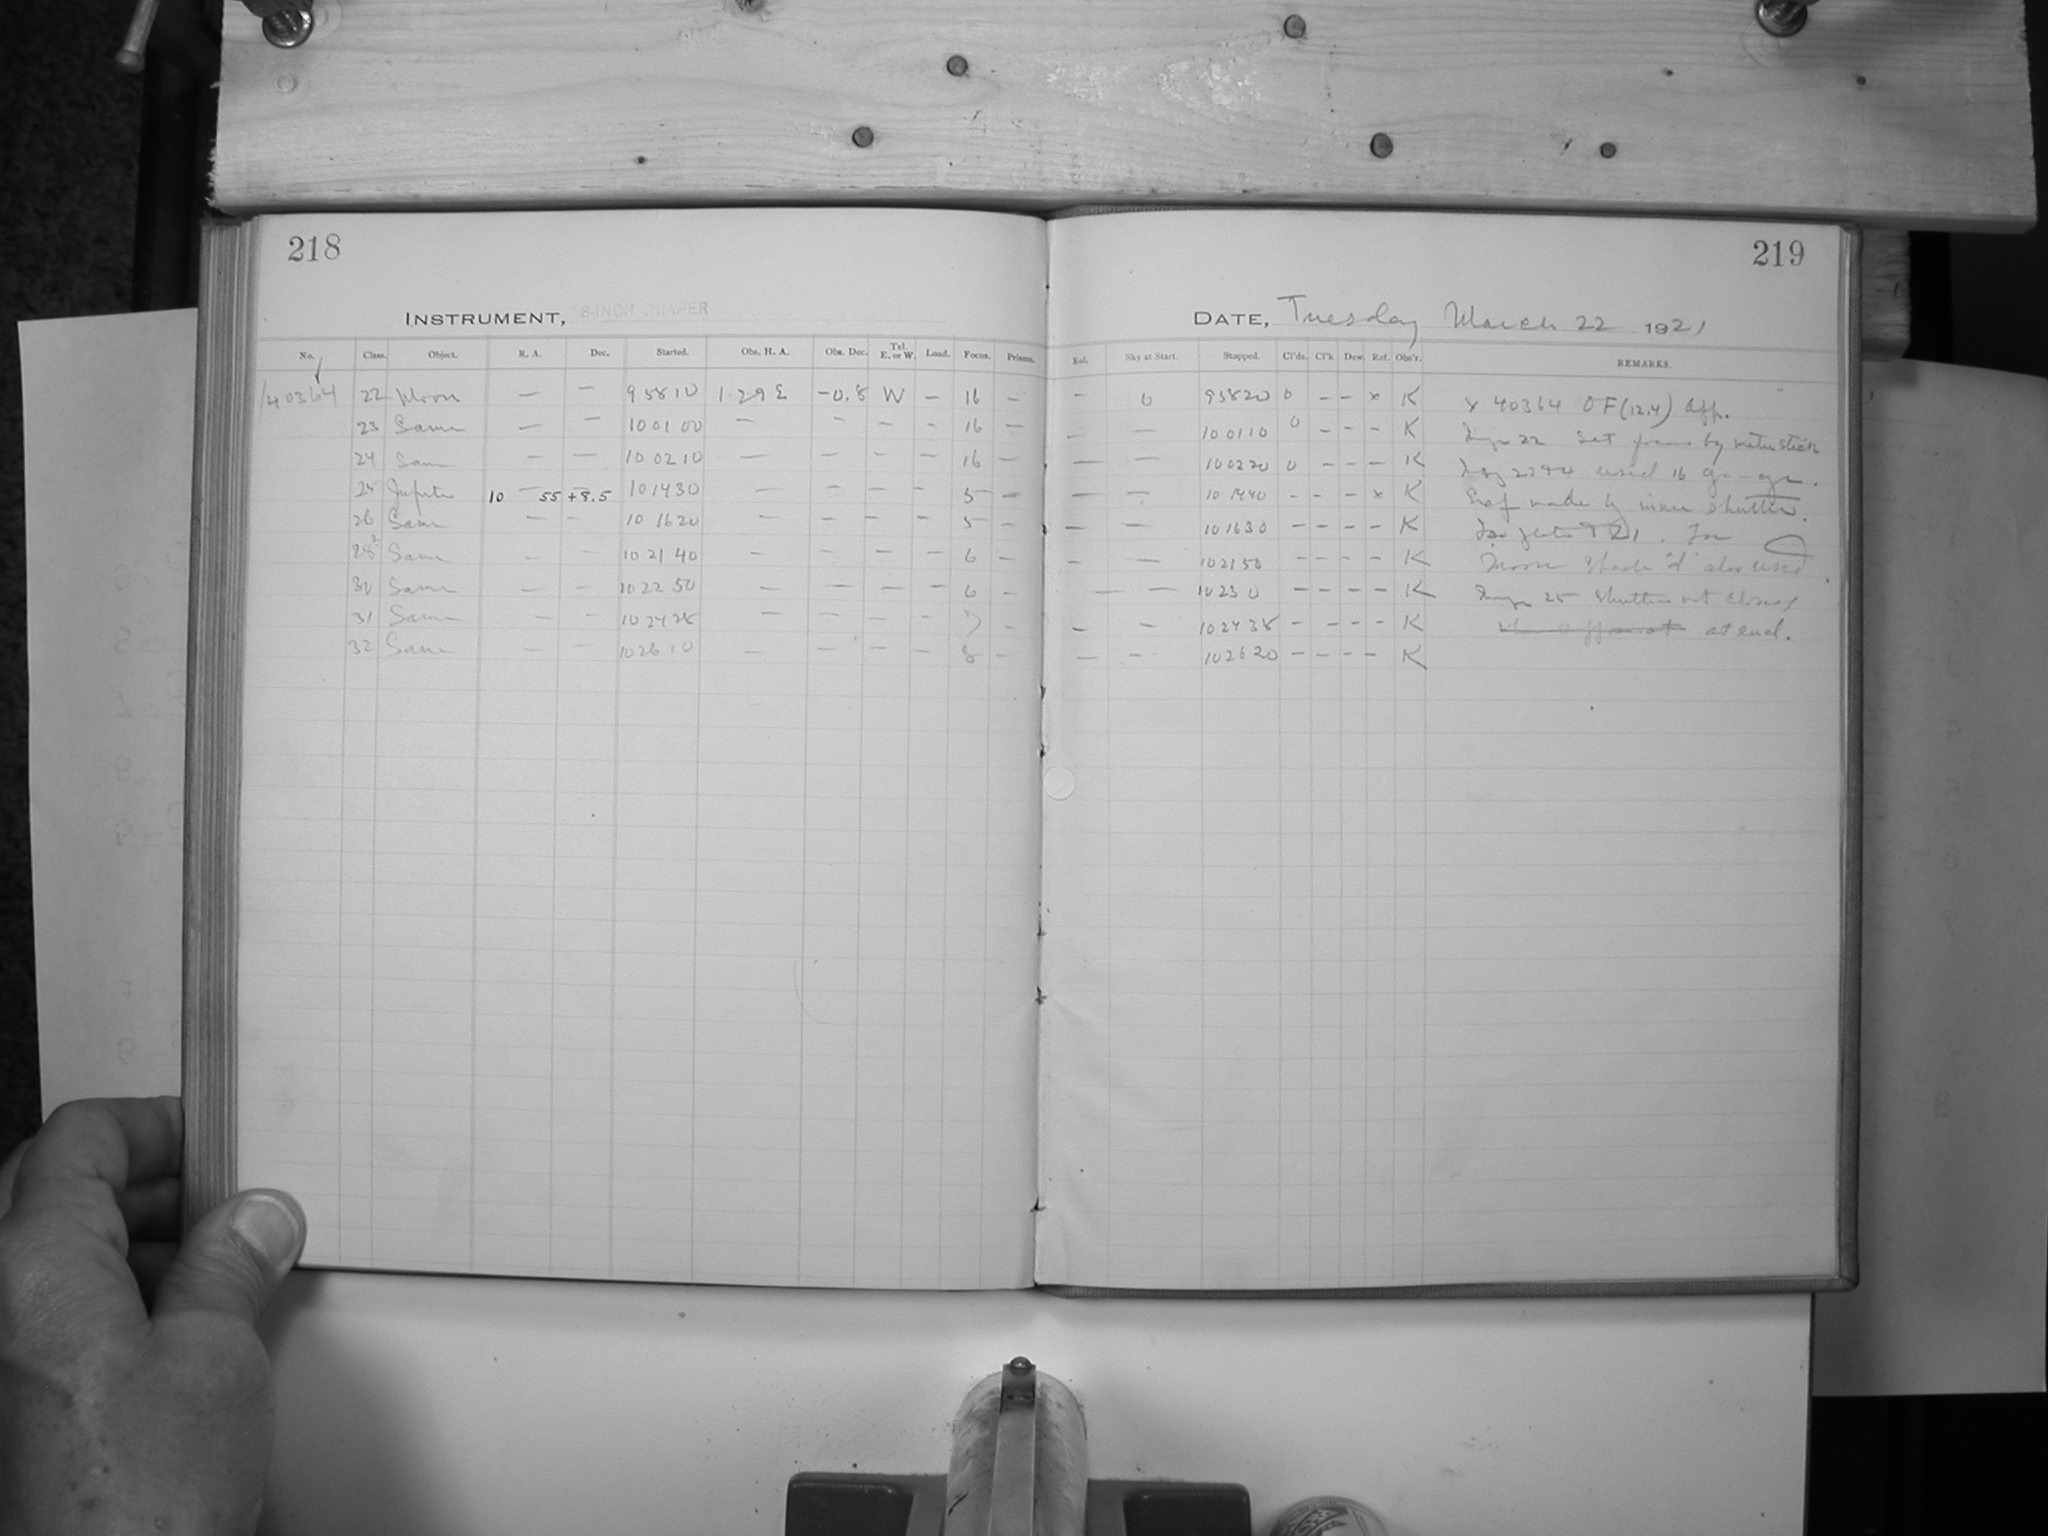 218
219
INSTRUMENT, 8-INCH DRAPER
DATE, Tuesday March 22 1921
No. Class. Object. R. A. Dec. Started. Obs. H. A. Obs. Dec. Tel. E. or W. Load. Focus. Prisms. Rul. Sky at Start. Stopped. Cl'ds. Cl'k Dew. Ref. Obs'r. REMARKS.
40364 22 Moon — — 9 58 10 1·29 E -0.8 W — 16 — - 0 9 58 20 0 - - x K x 40364 O F (12,4) Aff.
23 Same — — 10 01 00 — — - - 16 — — — 10 01 10 0 - - - K 22 Set focus by
24 Same — — 10 02 10 — — - - 16 — — — 10 02 20 0 - - - K used 16
25 Jupiter 10 — 55 +8.5 10 14 30 — — - - 5 — — — 10 14 40 - - - x K made by inner shutter.
26 Same — — 10 16 20 — — - - 5 — — — 10 16 30 - - - - K
28 Same — — 10 21 40 — — - - 6 — — — 10 21 50 - - - - K Moon also used
30 Same — — 10 22 50 — — - - 6 — — — 10 23 0 - - - - K 25 Shutter not closed
31 Same — — 10 24 28 — — - - 7 — — — 10 24 38 - - - - K at end.
32 Same — — 10 26 10 — — - - 8 — — — 10 26 20 - - - - K